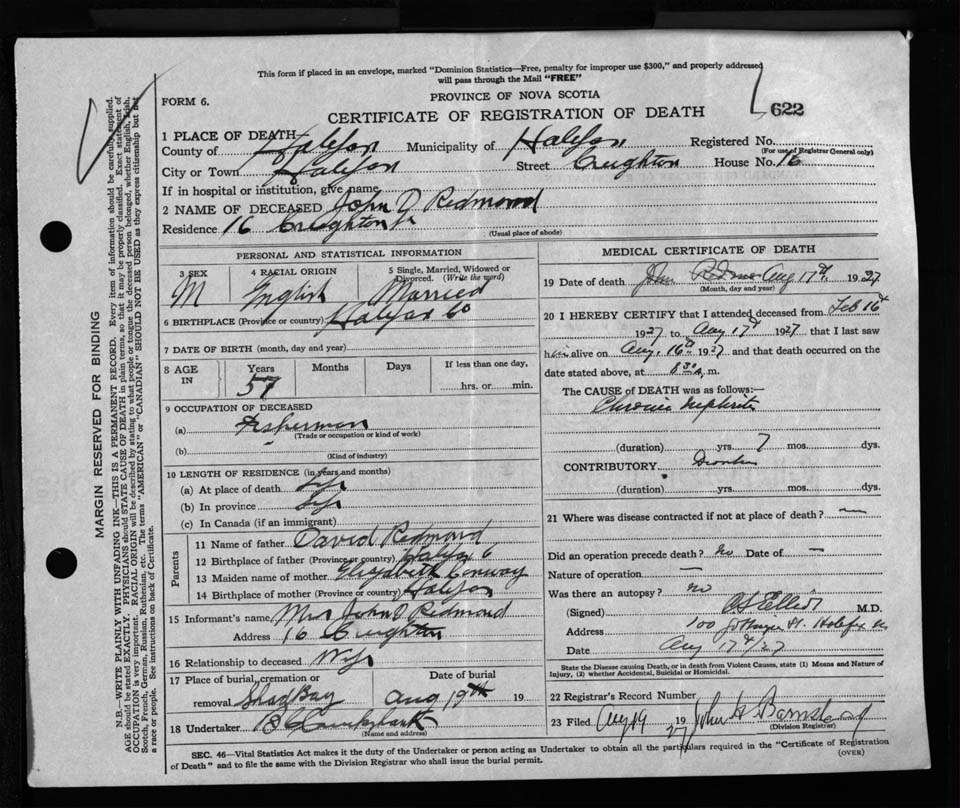 This form if placed in an envelope, marked "Dominion Statistics—Free, penalty for improper use $300," and properly addressed
will pass through the Mail "FREE"
PROVINCE OF NOVA SCOTIA
FORM 6.
CERTIFICATE OF REGISTRATION OF DEATH
622
1 PLACE OF DEATH
County of Halifax Municipality of Halifax Registered No.
(For use of Registrar General only)
City or Town Halifax Street Creighton House No. 16
If in hospital or institution, give name
2 NAME OF DECEASED John D Redmond
Residence 16 Creighton
(Usual place of abode)
PERSONAL AND STATISTICAL INFORMATION
3 SEX M
4 RACIAL ORIGIN English
5 Single, Married, Widowed or Divorced. (Write the word) Married
6 BIRTHPLACE (Province or country) Halifax Co
7 DATE OF BIRTH (month, day and year)
8 AGE IN Years 57 Months Days If less than one day, hrs. or min.
9 OCCUPATION OF DECEASED
(a) Fisherman
(Trade or occupation or kind of work)
(b)
(Kind of industry)
10 LENGTH OF RESIDENCE (in years and months)
(a) At place of death Life
(b) In province Life
(c) In Canada (if an immigrant)
Parents
11 Name of father David Redmond
12 Birthplace of father (Province or country) Halifax C
13 Maiden name of mother Elizabeth Conway
14 Birthplace of mother (Province or country) Halifax
15 Informant's name Mrs John D Redmond
Address 16 Creighton
16 Relationship to deceased Wife
17 Place of burial, cremation or removal Shad Bay
Date of burial Aug 19th 19
18 Undertaker
(Name and address)
MEDICAL CERTIFICATE OF DEATH
19 Date of death John Redmond Aug 17th 1927
(Month, day and year)
20 I HEREBY CERTIFY that I attended deceased from Feb 16th
1927 to Aug 17th 1927 that I last saw
him alive on Aug. 16th 1927 and that death occurred on the
date stated above, at m.
The CAUSE of DEATH was as follows:—
Chronic nephritis
(duration) yrs. 7 mos. dys.
CONTRIBUTORY
(duration) yrs. mos. dys.
21 Where was disease contracted if not at place of death? —
Did an operation precede death? No Date of —
Nature of operation —
Was there an autopsy? no
(Signed) Elliott M.D.
Address 100
Date Aug 17th/27
State the Disease causing Death, or in death from Violent Causes, state (1) Means and Nature of
Injury, (2) whether Accidental, Suicidal or Homicidal.
22 Registrar's Record Number
23 Filed Aug 19 1927 John H Barnstead
(Division Registrar)
SEC. 46—Vital Statistics Act makes it the duty of the Undertaker or person acting as Undertaker to obtain all the particulars required in the "Certificate of Registration
of Death" and to file the same with the Division Registrar who shall issue the burial permit.
(OVER)
MARGIN RESERVED FOR BINDING
N.B.—WRITE PLAINLY WITH UNFADING INK—THIS IS A PERMANENT RECORD. Every item of information should be carefully supplied.
AGE should be stated EXACTLY. PHYSICIANS should STATE CAUSE OF DEATH in plain terms, so that it may be properly classified. Exact statement of
OCCUPATION is very important. RACIAL ORIGIN will be described by stating to what people or tongue the deceased person belonged, whether English, Irish,
Scotch, French, German, Russian, Ruthenian, etc. The terms "AMERICAN" or "CANADIAN" SHOULD NOT BE USED as they express citizenship but not
a race or people. See instructions on back of Certificate.